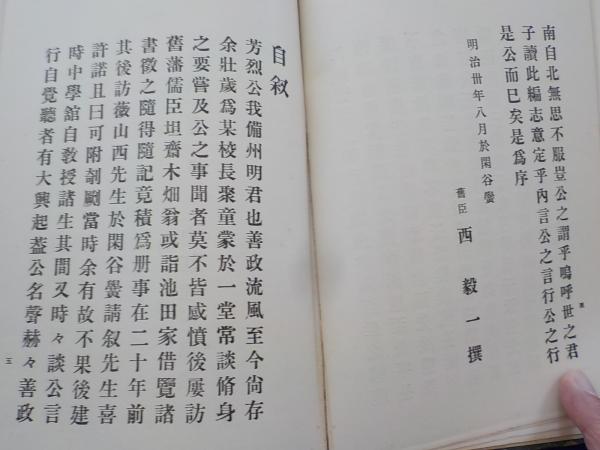 南自北無思不服豈公之謂乎嗚呼世之君
子讀此編志意定乎内言公之言行公之行
是公而已矣是爲序
明治卅年八月於閑谷黌
舊臣 西毅一撰
自敘
芳烈公我備州明君也善政流風至今尙存
余壯歲爲某校長聚童蒙於一堂常談脩身
之要嘗及公之事聞者莫不皆感憤後屢訪
舊藩儒臣坦齋木畑翁或詣池田家借覽諸
書徵之隨得隨記竟積爲册事在二十年前
其後訪薇山西先生於閑谷黌請敘先生喜
許諾且曰可附剞劂當時余有故不果後建
時中學舘自敎授諸生其間又時々談公言
行自覺聽者有大興起葢公名聲赫々善政
五